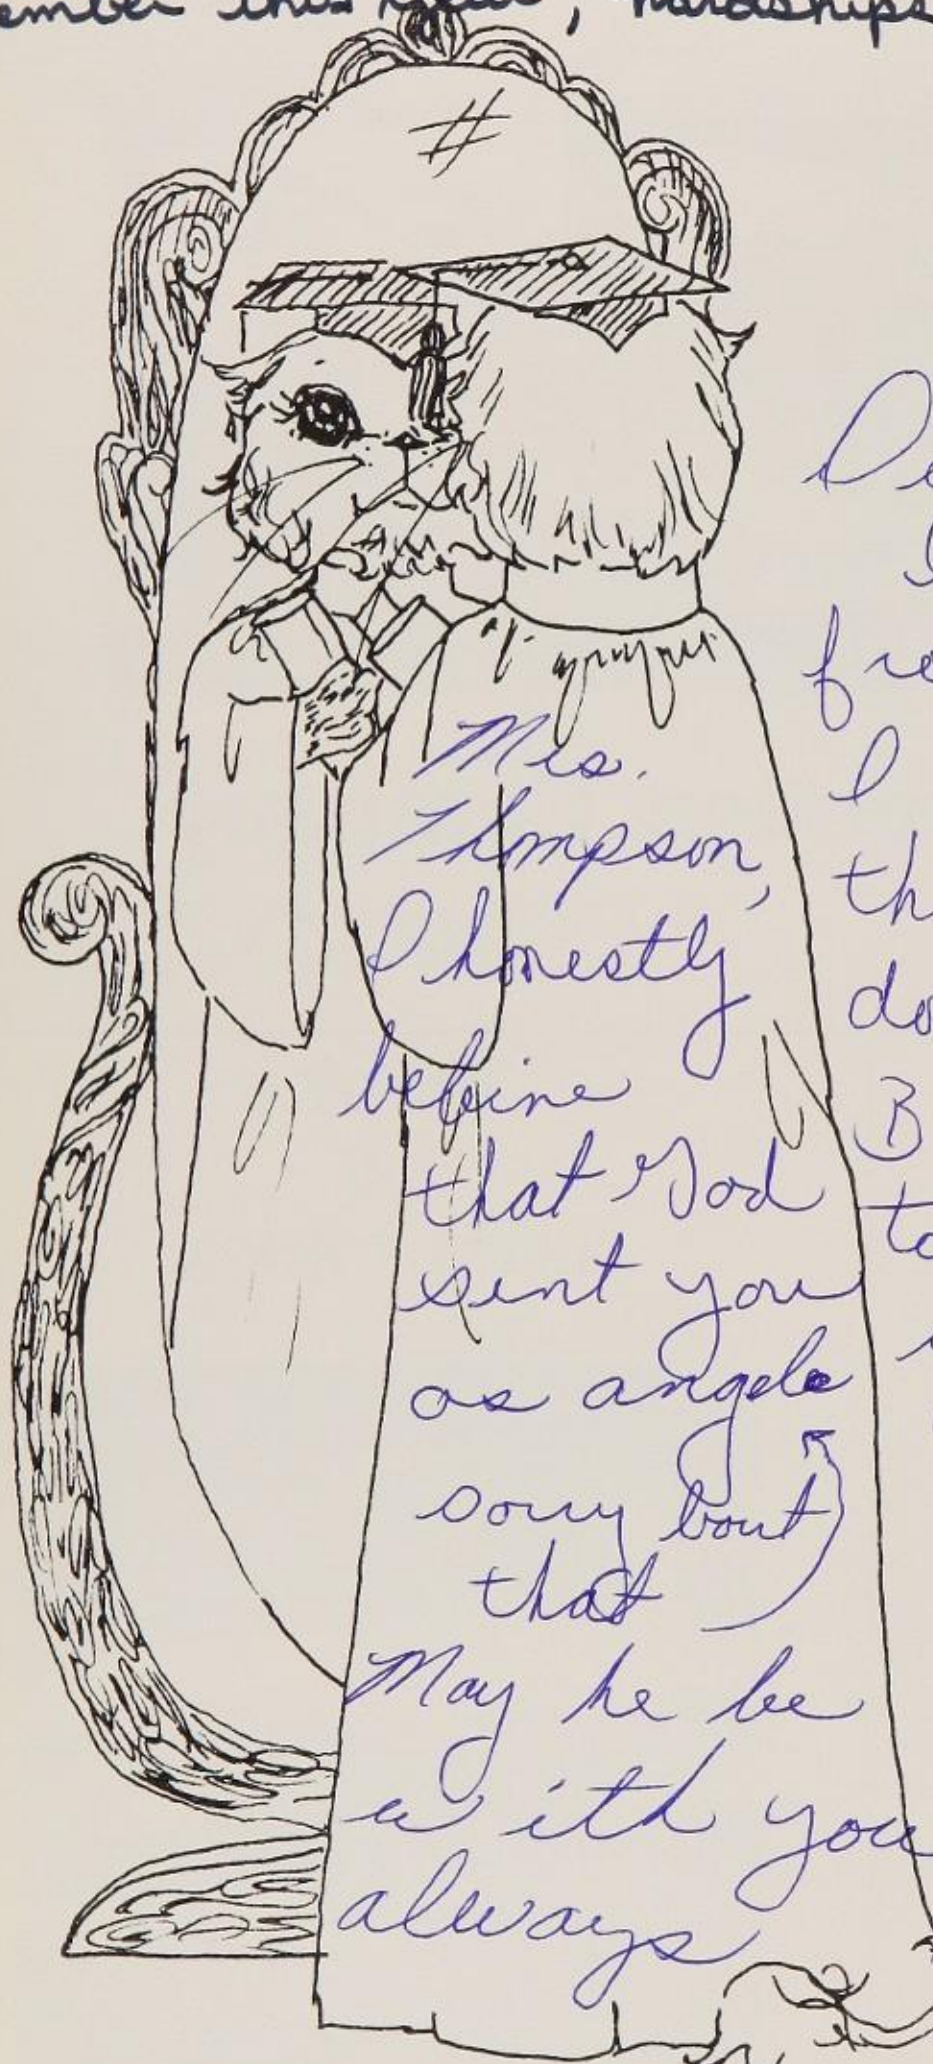 this year, hardships
Mrs.
Thmpson,
I honestly
that God
sent you
as angele
sorry bout
that
May he be
with you
always
fre
I
th
do
B
to